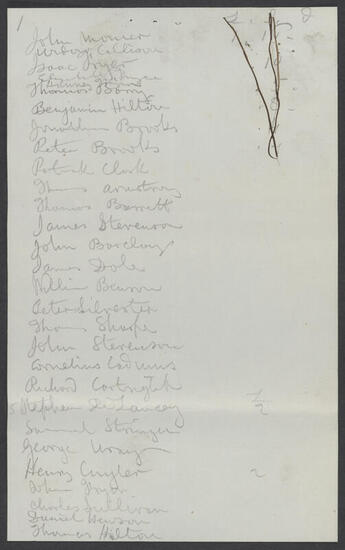 1
£ s d
John Monier
Callison
Isaac Fryer
Thomas Barry
Benjamin Hilton
Jonathan Brooks
Peter Brooks
Patrick Clark
Thomas Armstrong
Thomas Barrett
James Stevenson
John Barclay
James Dole
William Benson
Peter Silvester
Thomas Sharpe
John Stevenson
Cornelius Cadmus
Richard Cartright
Stephen DeLancey
2
Samuel Stringer
George Wray
Henry Cuyler 2
John Fryer
Charles Sullivan
Daniel Hewson
Thomas Hilton